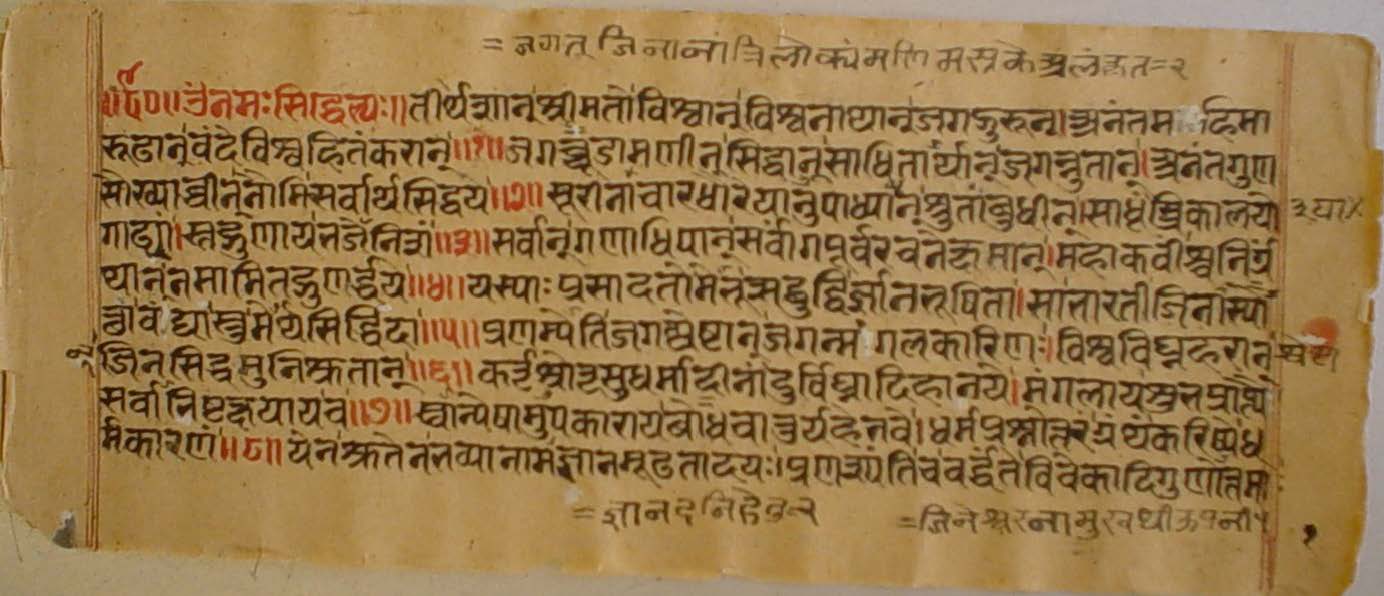 = जगत् जिनानां त्रिलोक्यं मस्तके अलंकृत = २
॥ नमः सिद्धेभ्यः॥ तीर्थेशान् श्रीमतो विश्वान् विश्वनाथान् जगद्गुरून्। अनंतमहिमा
रूढान् वंदे विश्वहितंकरान्॥१॥ जगच्चूडामणीन् सिद्धान् साधितार्थान् जगन्नुतान्। अनंतगुण
सौख्याब्धीन् नौमि सर्वार्थसिद्धये॥२॥ सूरीनाचारधारयानुपाध्यान् श्रुतांबुधीन्। साधूंस्त्रिकालयो
गाढ्यां सद्गुणाय ॥३॥ सर्वान् गणाधिपान् सर्वांगपूर्वरचनक्षमान्। महाकवींश्च निर्ग्रं
थान् नमामि तद्गुणर्द्धये॥४॥ यस्याः प्रसादतो मेभूत् सद्बुद्धिर्ज्ञानभूषिता। सा भारती जिनास्यो
वंद्यास्तु मेर्थसिद्धिदा॥५॥ प्रणम्येति जगच्छ्रेष्टान् जगन्मंगलकारिणः। विश्वविघ्नहरान्
जिनसिद्धमुनिश्रुतान्॥६॥ कर्तृश्रोतृसुधर्मादीनां दुर्विघ्नादिहानये। मंगलाय श्रुतप्राप्त्यै
सर्वानिष्टक्षयाय च॥७॥ स्वान्येषामुपकाराय बोधवाच्चर्यहेतवे। धर्मप्रश्नोत्तरं ग्रंथं करिष्ये ध
र्मकारणं॥८॥ येन श्रुतेन भव्यानामज्ञानमूढतादयः। प्रणश्यंति च वर्द्धंते विवेकादिगुणोत्तमाः